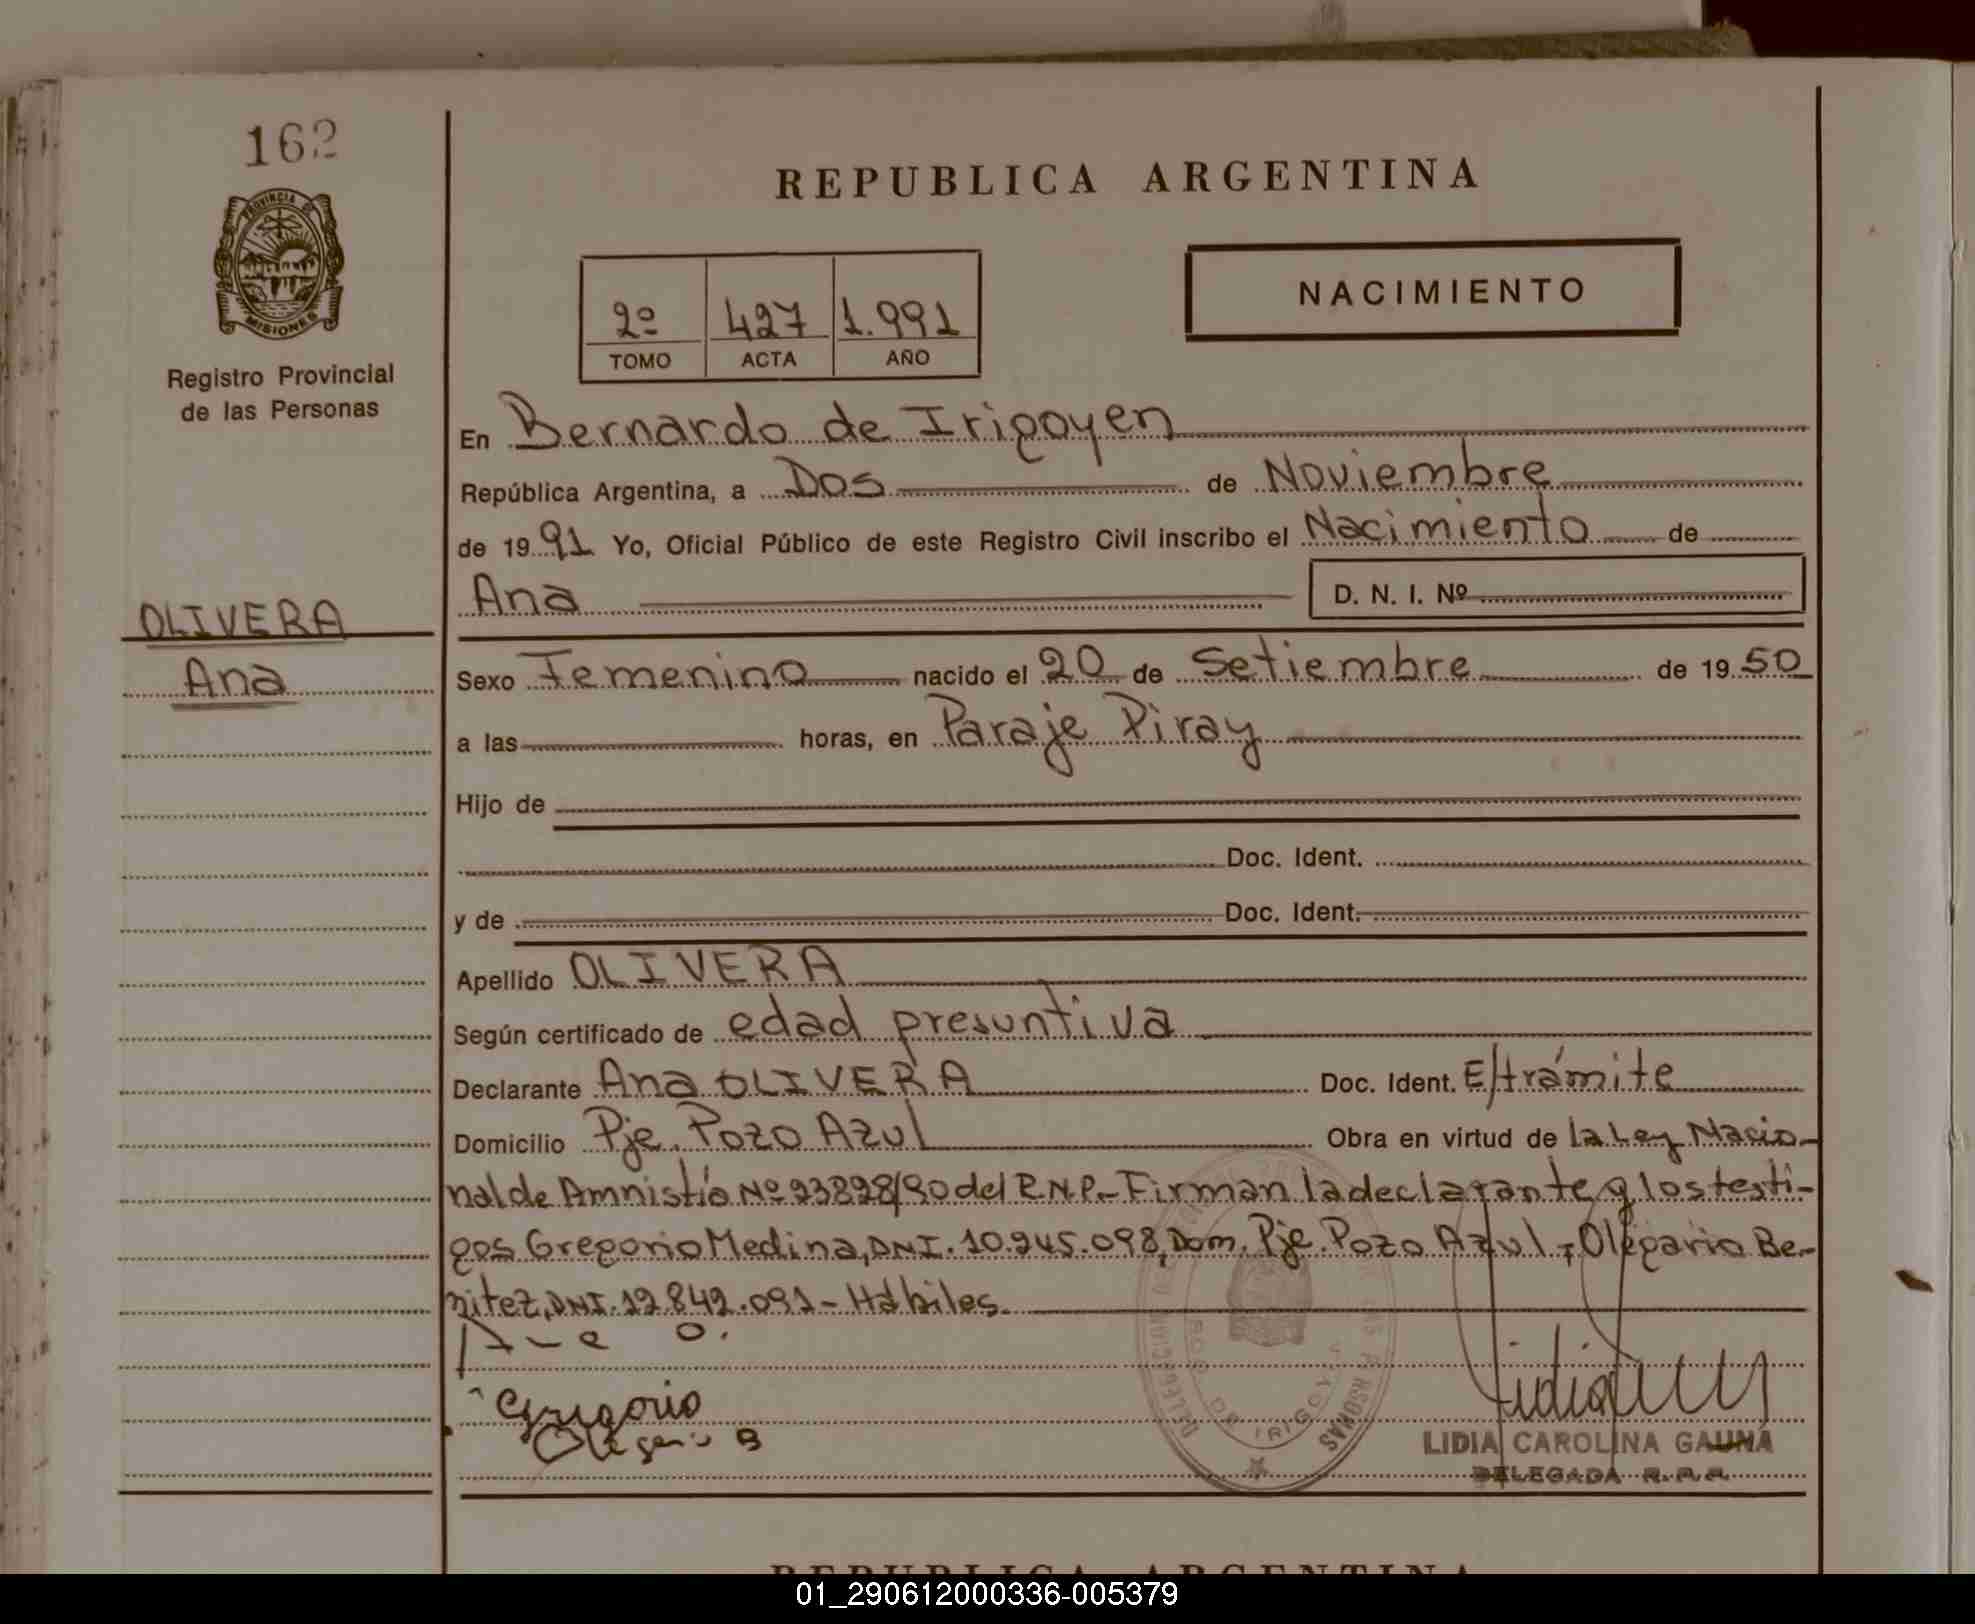 162
REPUBLICA ARGENTINA
PROVINCIA DE
MISIONES
Registro Provincial
de las Personas
2º 427 1.991
TOMO ACTA AÑO
NACIMIENTO
En Bernardo de Irigoyen
República Argentina, a Dos de Noviembre
de 1991 Yo, Oficial Público de este Registro Civil inscribo el Nacimiento de
Ana D. N. I. Nº
OLIVERA
Ana
Sexo Femenino nacido el 20 de Setiembre de 1950
a las horas, en Paraje Piray
Hijo de
Doc. Ident.
y de Doc. Ident.
Apellido OLIVERA
Según certificado de edad presuntiva
Declarante Ana OLIVERA Doc. Ident. E/trámite
Domicilio Pje. Pozo Azul Obra en virtud de la Ley Nacio-
nal de Amnistía Nº 23828/90 del R.N.P.- Firman la declarante y los testi-
gos Gregorio Medina, DNI. 10.245.098, Dom. Pje. Pozo Azul y Olegario Be-
nitez, DNI. 12.842.091 - Hábiles.
Ana O.
Gregorio
Olegario B
LIDIA CAROLINA GAUNA
DELEGADA R.P.P.
REPUBLICA ARGENTINA
01_290612000336-005379